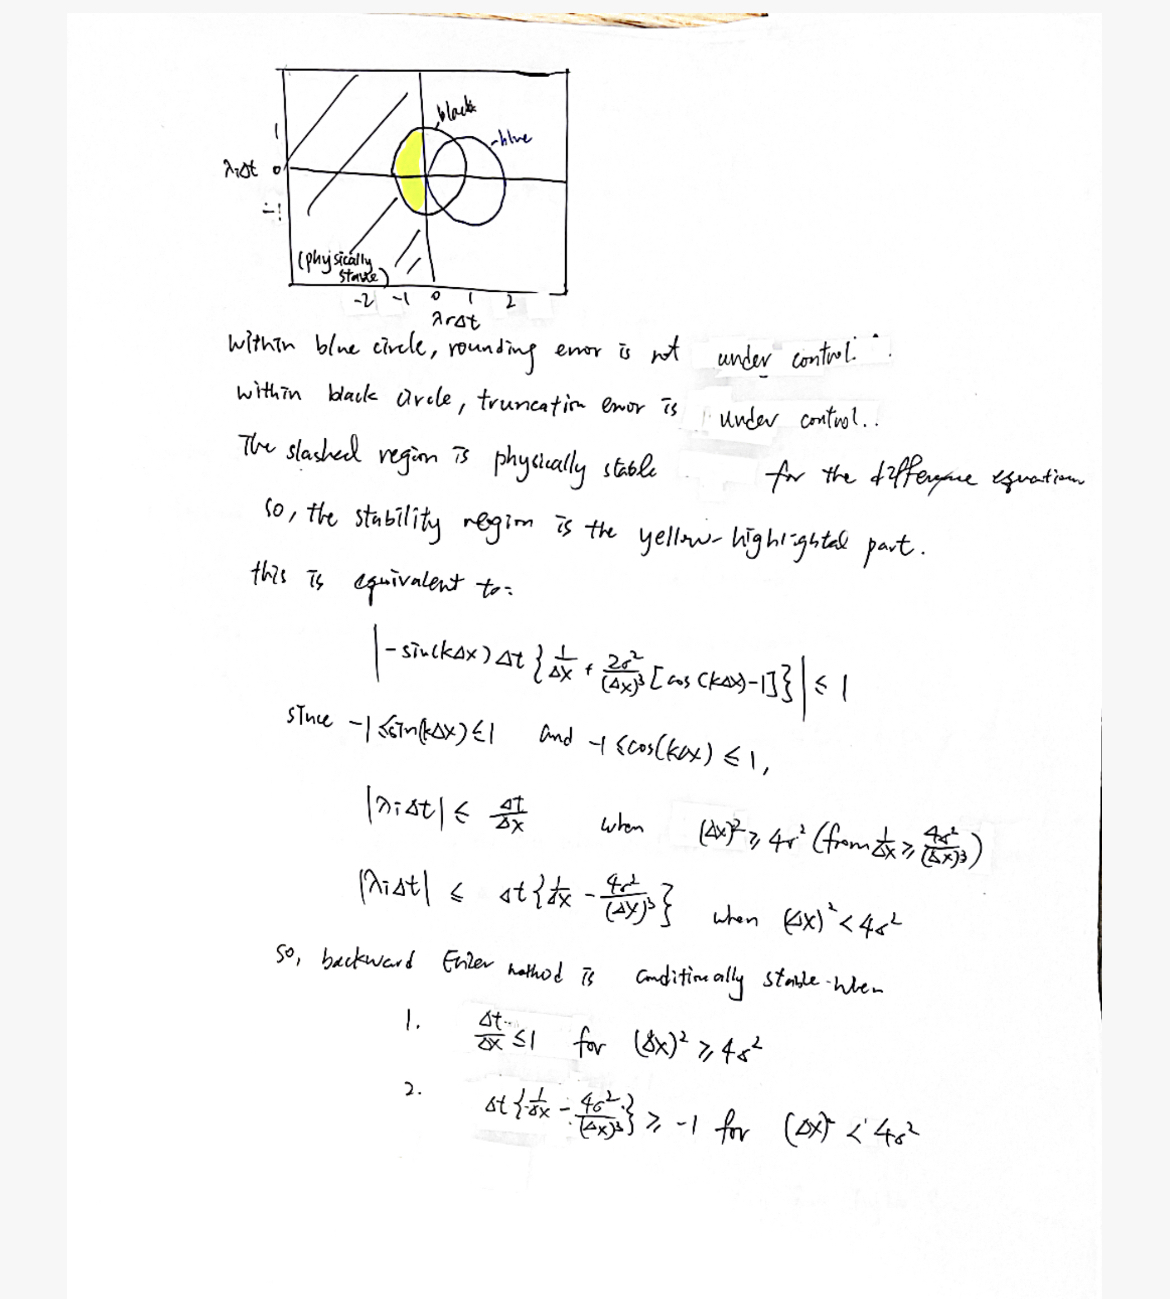 black
blue
1
λiΔt 0
-1
(physically
stable)
-2 -1 0 1 2
λrΔt
Within blue circle, rounding error is not under control.
within black circle, truncation error is under control..
The slashed region is physically stable for the difference equation
so, the stability region is the yellow-highlighted part.
this is equivalent to:
|-sin(kΔx)Δt{1/Δx + 2σ²/(Δx)³[cos(kΔx)-1]}| ≤ 1
since -1≤sin(kΔx)≤1 and -1≤cos(kΔx)≤1,
|λiΔt| ≤ Δt/Δx when (Δx)² ≥ 4σ² (from 1/Δx ≥ 4σ²/(Δx)³)
|λiΔt| ≤ Δt{1/Δx - 4σ²/(Δx)³} when (Δx)² < 4σ²
So, backward Euler method is conditionally stable when
1. Δt/Δx ≤ 1 for (Δx)² ≥ 4σ²
2. Δt{1/Δx - 4σ²/(Δx)³} ≥ -1 for (Δx)² < 4σ²